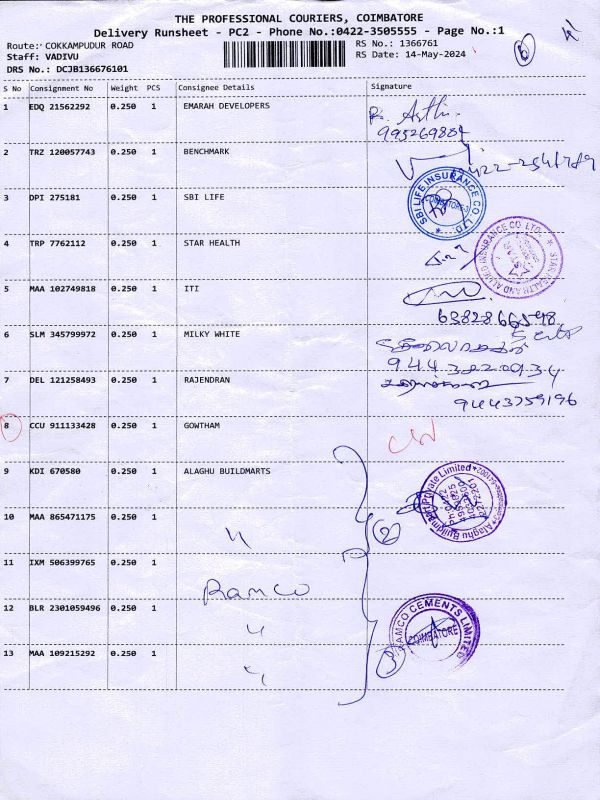 THE PROFESSIONAL COURIERS, COIMBATORE
Delivery Runsheet - PC2 - Phone No.:0422-3505555 - Page No.:1
Route: COKKAMPUDUR ROAD
RS No.: 1366761
Staff: VADIVU
RS Date: 14-May-2024
DRS No.: DCJB136676101
S No Consignment No Weight PCS Consignee Details Signature
1 EDQ 21562292 0.250 1 EMARAH DEVELOPERS
2 TRZ 120057743 0.250 1 BENCHMARK
3 DPI 275181 0.250 1 SBI LIFE
SBI LIFE INSURANCE CO. LTD.
COIMBATORE-2
4 TRP 7762112 0.250 1 STAR HEALTH
STAR HEALTH AND ALLIED INSURANCE CO. LTD.
5 MAA 102749818 0.250 1 ITI
63828 66598
6 SLM 345799972 0.250 1 MILKY WHITE
9443820934
7 DEL 121258493 0.250 1 RAJENDRAN
9443759196
8 CCU 911133428 0.250 1 GOWTHAM
9 KDI 670580 0.250 1 ALAGHU BUILDMARTS
Alaghu Buildmart Private Limited
10 MAA 865471175 0.250 1 "
2
11 IXM 506399765 0.250 1 Ramco
12 BLR 2301059496 0.250 1 "
RAMCO CEMENTS LIMITED
COIMBATORE
13 MAA 109215292 0.250 1 "
3